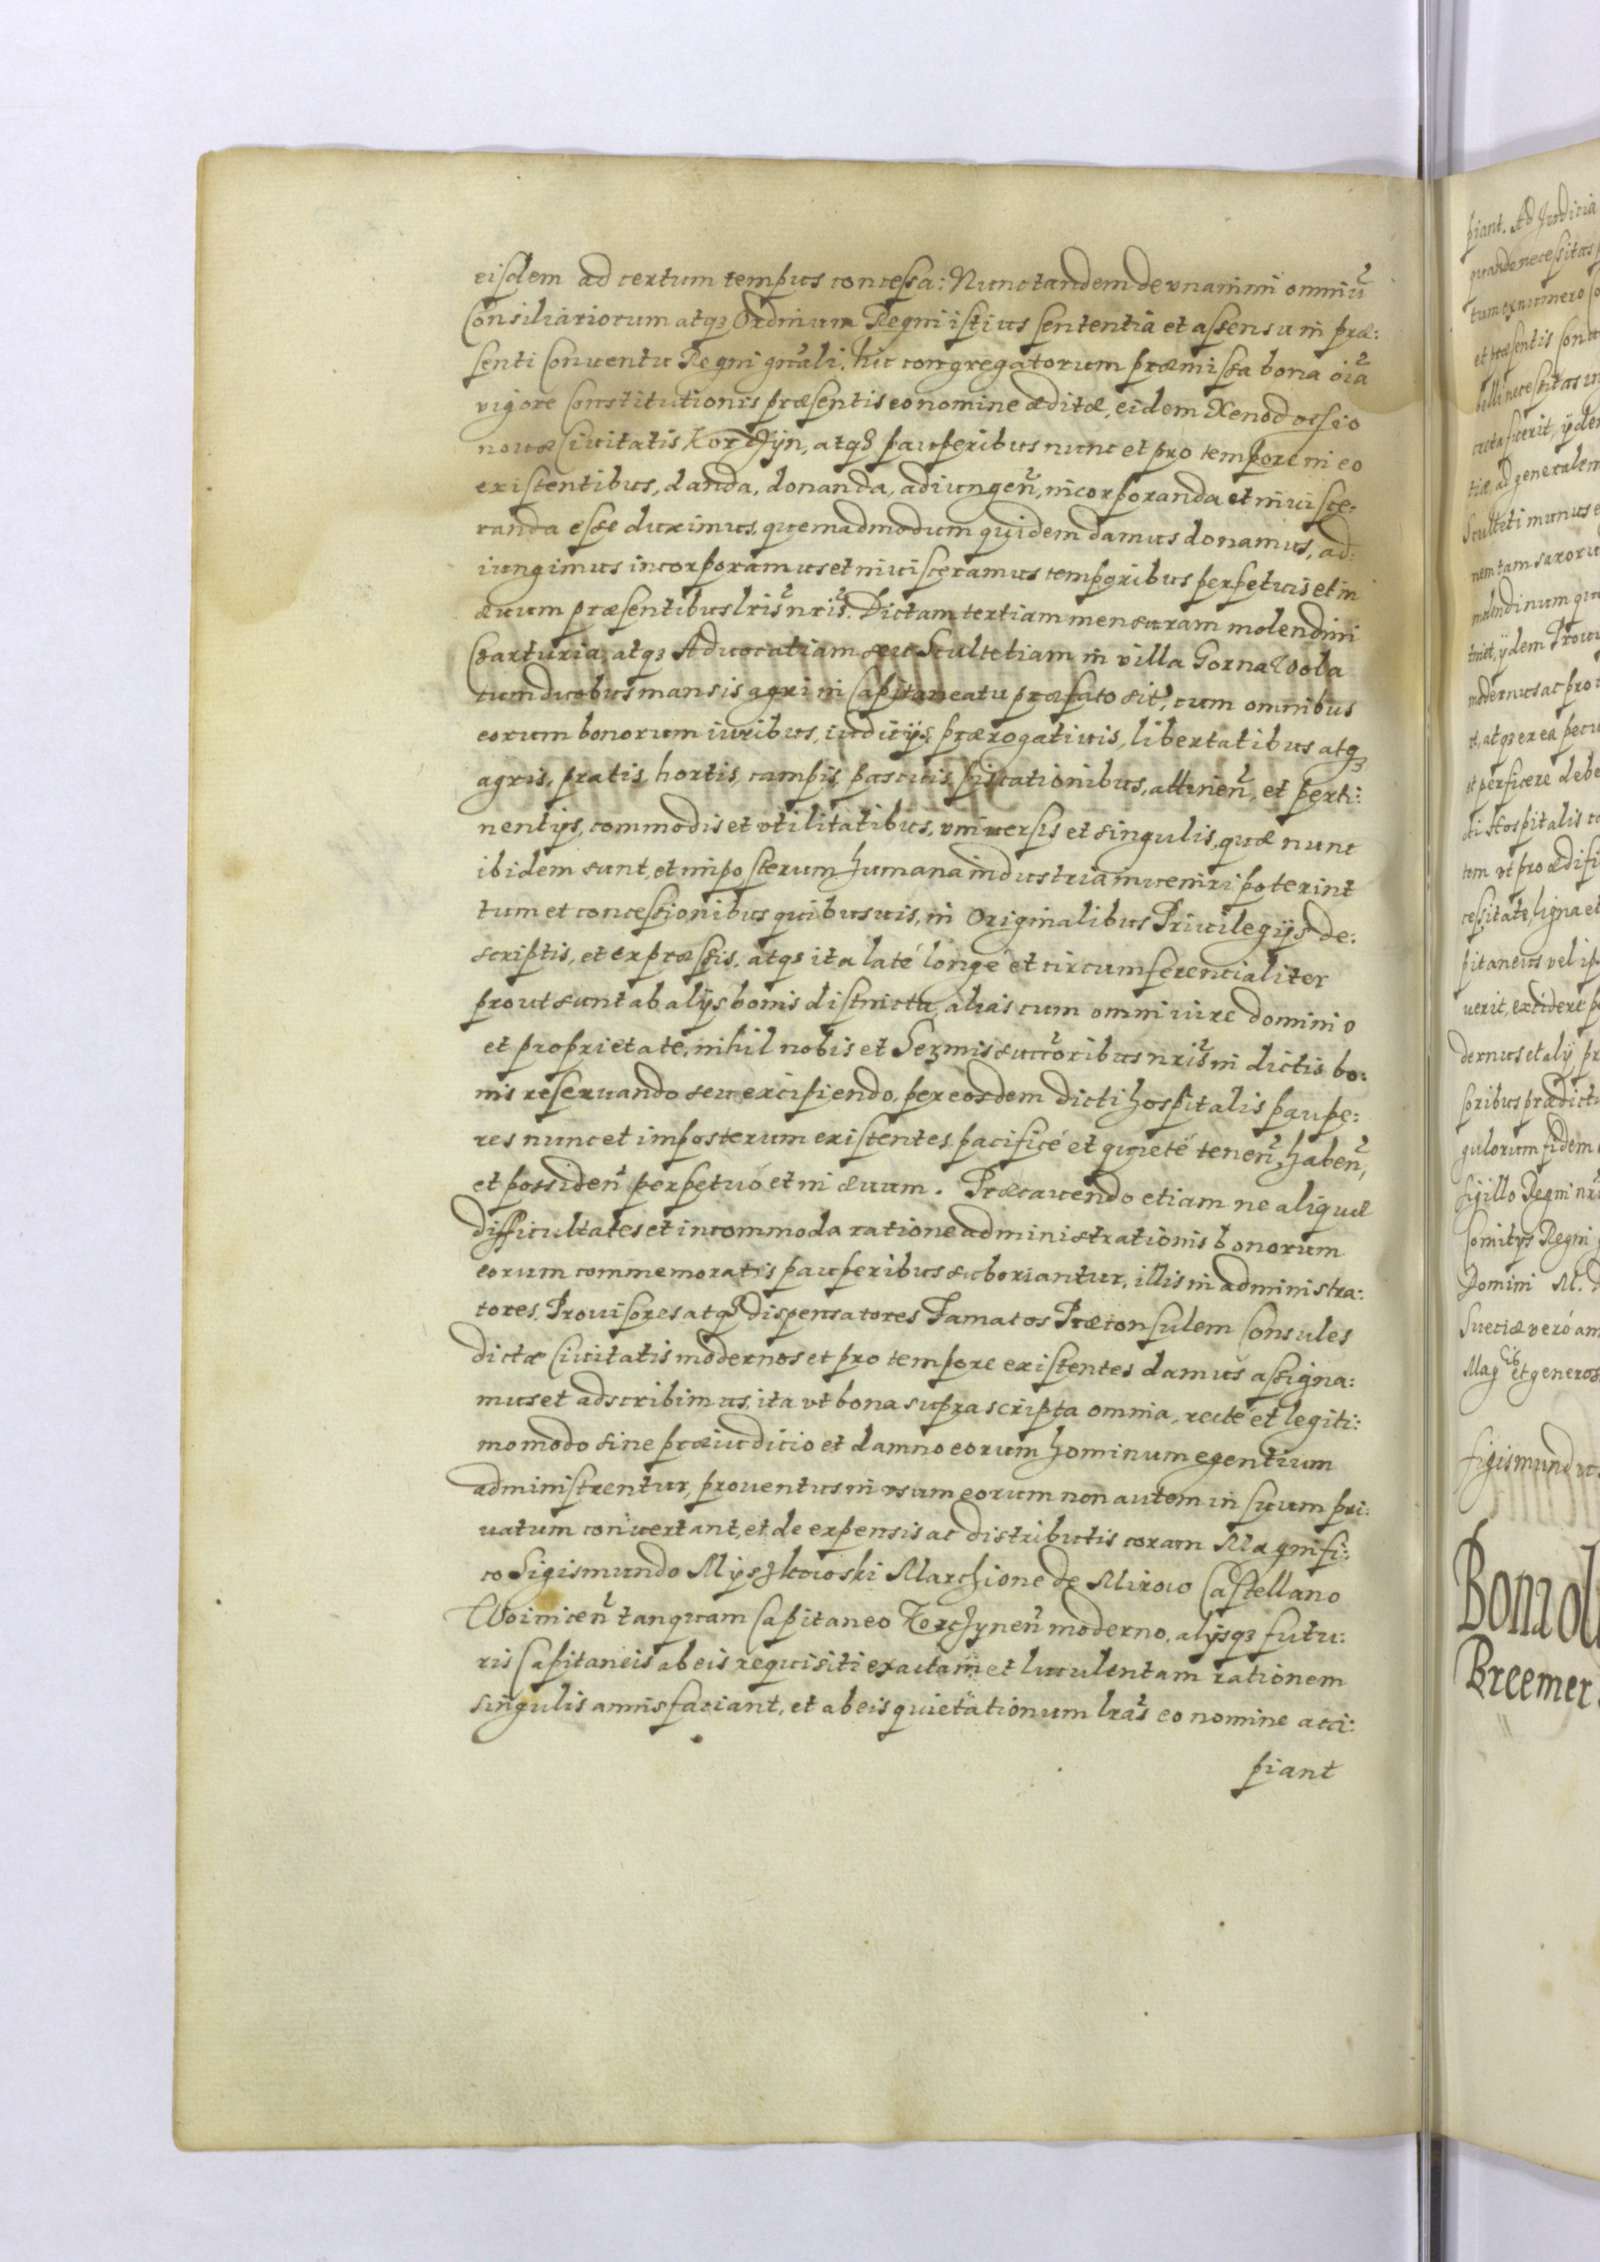 eisdem ad certum tempus concessa: Nunc tandem de vnanimi omniũ
Consiliariorum atqȝ Ordinum Regni istius sententia et assensu in præ:
senti Conuentu Regni gñali hic congregatorum præmissa bona oĩa
vigore Constitutionis præsentis eo nomine æditæ, eidem Xenodochio
nouæ Ciuitatis Korchÿn, atqȝ pauperibus nunc et pro tempore in eo
existentibus, danda, donanda, adiungeñ, incorporanda et inuisce:
randa esse duximus, quemadmodum quidem damus donamus, ad:
iungimus incorporamus et inuisceramus temporibus perpetuis et in
æuum præsentibus lris̃ nris̃. Dictam tertiam mensuram molendini
atqȝ Aduocatiam seu Scultetiam in villa Gorna Wola
cum duobus mansis agri in Capitaneatu præfato sit̃, cum omnibus
eorum bonorum iuribus, iudicijs, prærogatiuis, libertatibus atqȝ
agris, pratis, hortis, campis, pascuis, piscationibus, attineñ, et perti:
nentijs, commodis et vtilitatibus, vniuersis et singulis, quæ nunc
ibidem sunt, et imposterum humana industria inueniri poterint
tum et concessionibus quibusuis, in Originalibus Priuilegijs de:
scriptis, et expræssis, atqȝ ita latè longè et circumferencialiter
prout sunt ab alijs bonis distincta, alias cum omni iure dominio
et proprietate, nihil nobis et Sermis succ̃oribus nris̃ in dictis bo:
nis reseruando seu excipiendo, per eosdem dicti hospitalis paupe:
res nunc et imposterum existentes, pacificè et quietè teneñ, habeñ,
et possideñ perpetuò et in æuum. Præcauendo etiam ne aliquæ
difficultates et incommoda ratione administrationis bonorum
eorum commemoratis pauperibus suboriantur, illis in administra:
tores, Prouisores atqȝ dispensatores Famatos Præconsulem Consules
dictæ Ciuitatis modernos et pro tempore existentes damus assigna:
mus et adscribimus, ita vt bona supra scripta omnia, rectè et legiti:
mo modo sine præiudicio et damno eorum hominum egentium
administrentur, prouentus in vsum eorum non autem in suum pri:
uatum conuertant, et de expensis ac distributis coram Magnifi:
co Sigismundo Myszkowski Marchione de Mirow Castellano
Woiniceñ tanquam Capitaneo Korchyneñ moderno, alijsqȝ futu:
ris Capitaneis ab eis requisiti exactam et luculentam rationem
singulis annis faciant, et ab eis quietationum lras̃ eo nomine acci:
piant
piant. Ad Judicia
quando necessitas
tum ex numero
et præsentis
belli necessitas
tiæ, ad generalem
Sculteti munus
nem tam saxoru
molendinum
modernus ac pro
et perficere debe
cti Hospitalis
tem vt pro ædifi
cessitate, ligna et
pitaneus vel
uerit, excidere
dernus et alij
soribus prædicti
gulorum fidem
sigillo Regni
Comitijs Regni
Domini M. D
Sueciæ verò
Mag et generos
Sigismundus